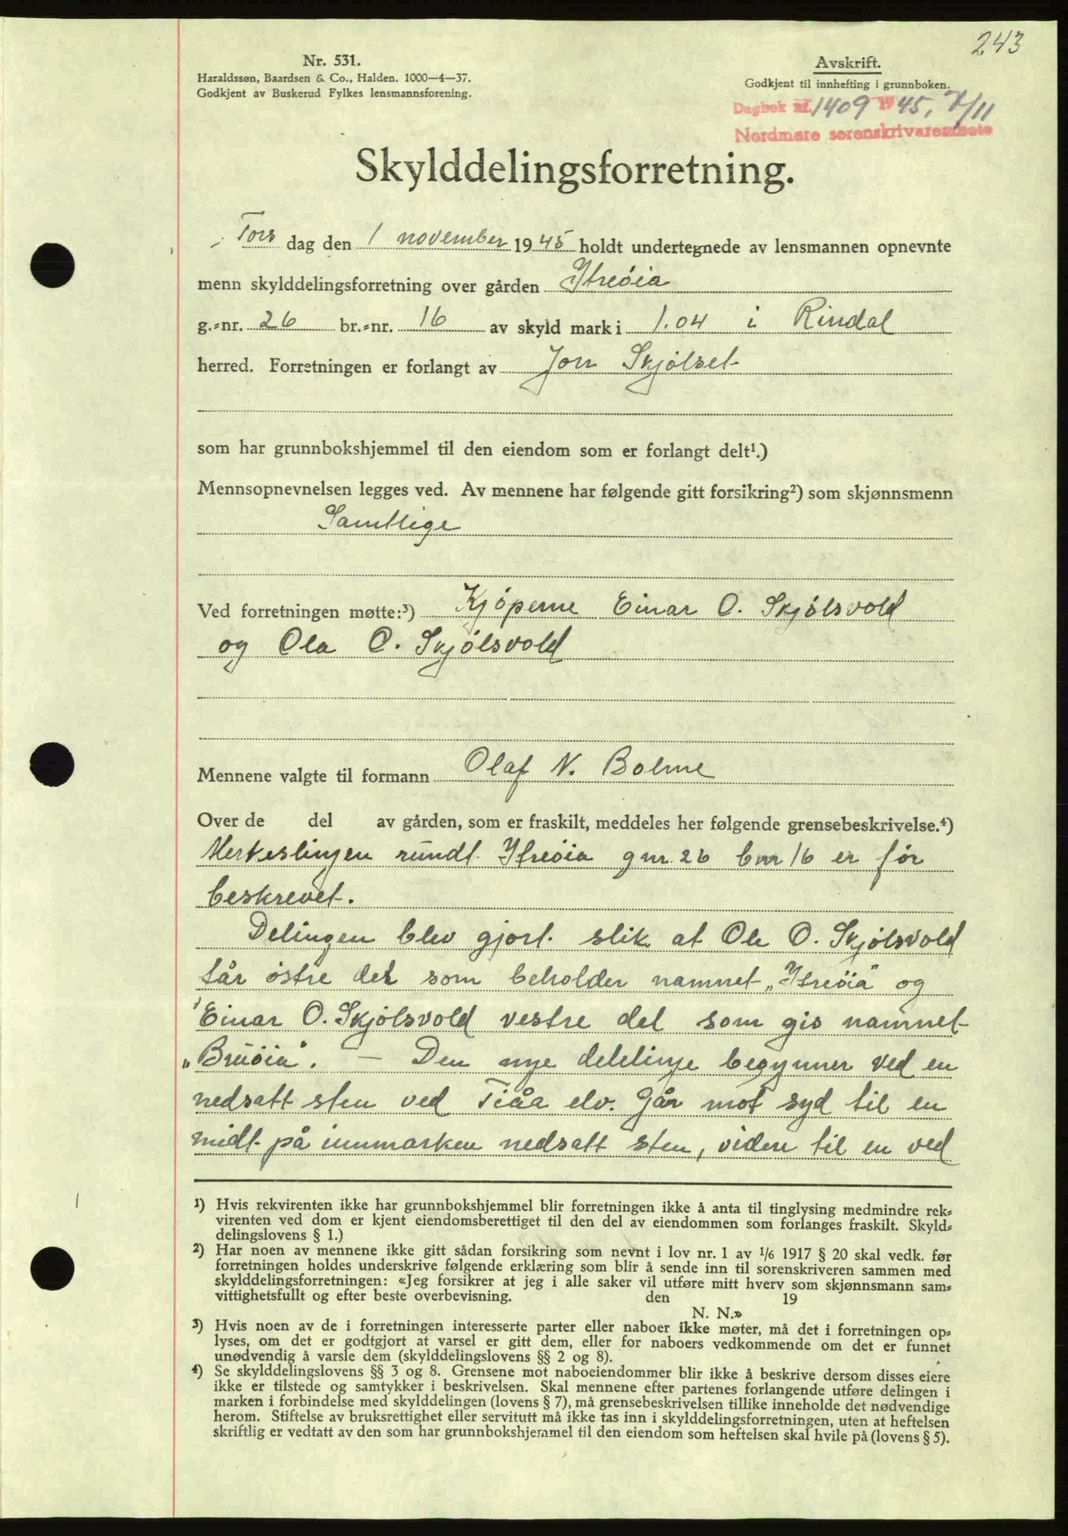 243
Nr. 531.
Haraldssøn, Baardsen & Co., Halden. 1000—4—37.
Godkjent av Buskerud Fylkes lensmannsforening.
Avskrift.
Godkjent til innhefting i grunnboken.
Dagbok nr. 1409 1945, 7/11
Nordmøre sorenskriverembete
Skylddelingsforretning.
Tors dag den 1 november 1945 holdt undertegnede av lensmannen opnevnte
menn skylddelingsforretning over gården Ytreöia
g.-nr. 26 br.-nr. 16 av skyld mark i 1.04 i Rindal
herred. Forretningen er forlangt av Jon Skjölset
som har grunnbokshjemmel til den eiendom som er forlangt delt¹.)
Mennsopnevnelsen legges ved. Av mennene har følgende gitt forsikring²) som skjønnsmenn
Samtlige
Ved forretningen møtte:³) Kjöperne Einar O. Skjölsvold
og Ola O. Skjölsvold
Mennene valgte til formann Olaf N. Bolme
Over de del av gården, som er fraskilt, meddeles her følgende grensebeskrivelse.⁴)
Merkeslinjen rundt Ytreöia gnr. 26 bnr 16 er för
beskrevet.
Delingen blev gjort slik at Ole O. Skjölsvold
får östre del som beholder namnet „Ytreöia" og
Einar O. Skjölsvold vestre del som gis namnet
„Bruöia". — Den nye delelinje begynner ved en
nedsatt sten ved Tiåa elv. Går mot syd til en
midt på innmarken nedsatt sten, videre til en ved
¹) Hvis rekvirenten ikke har grunnbokshjemmel blir forretningen ikke å anta til tinglysing medmindre rek-
virenten ved dom er kjent eiendomsberettiget til den del av eiendommen som forlanges fraskilt. Skyld-
delingslovens § 1.)
²) Har noen av mennene ikke gitt sådan forsikring som nevnt i lov nr. 1 av 1/6 1917 § 20 skal vedk. før
forretningen holdes underskrive følgende erklæring som blir å sende inn til sorenskriveren sammen med
skylddelingsforretningen: «Jeg forsikrer at jeg i alle saker vil utføre mitt hverv som skjønnsmann sam-
vittighetsfullt og efter beste overbevisning. den 19
N. N.»
³) Hvis noen av de i forretningen interesserte parter eller naboer ikke møter, må det i forretningen op-
lyses, om det er godtgjort at varsel er gitt dem, eller for naboers vedkommende om det er funnet
unødvendig å varsle dem (skylddelingslovens §§ 2 og 8).
⁴) Se skylddelingslovens §§ 3 og 8. Grensene mot naboeiendommer blir ikke å beskrive dersom disses eiere
ikke er tilstede og samtykker i beskrivelsen. Skal mennene efter partenes forlangende utføre delingen i
marken i forbindelse med skylddelingen (lovens § 7), må grensebeskrivelsen tillike inneholde det nødvendige
herom. Stiftelse av bruksrettighet eller servitutt må ikke tas inn i skylddelingsforretningen, uten at heftelsen
skriftlig er vedtatt av den som har grunnbokshjemmel til den eiendom som heftelsen skal hvile på (lovens § 5).